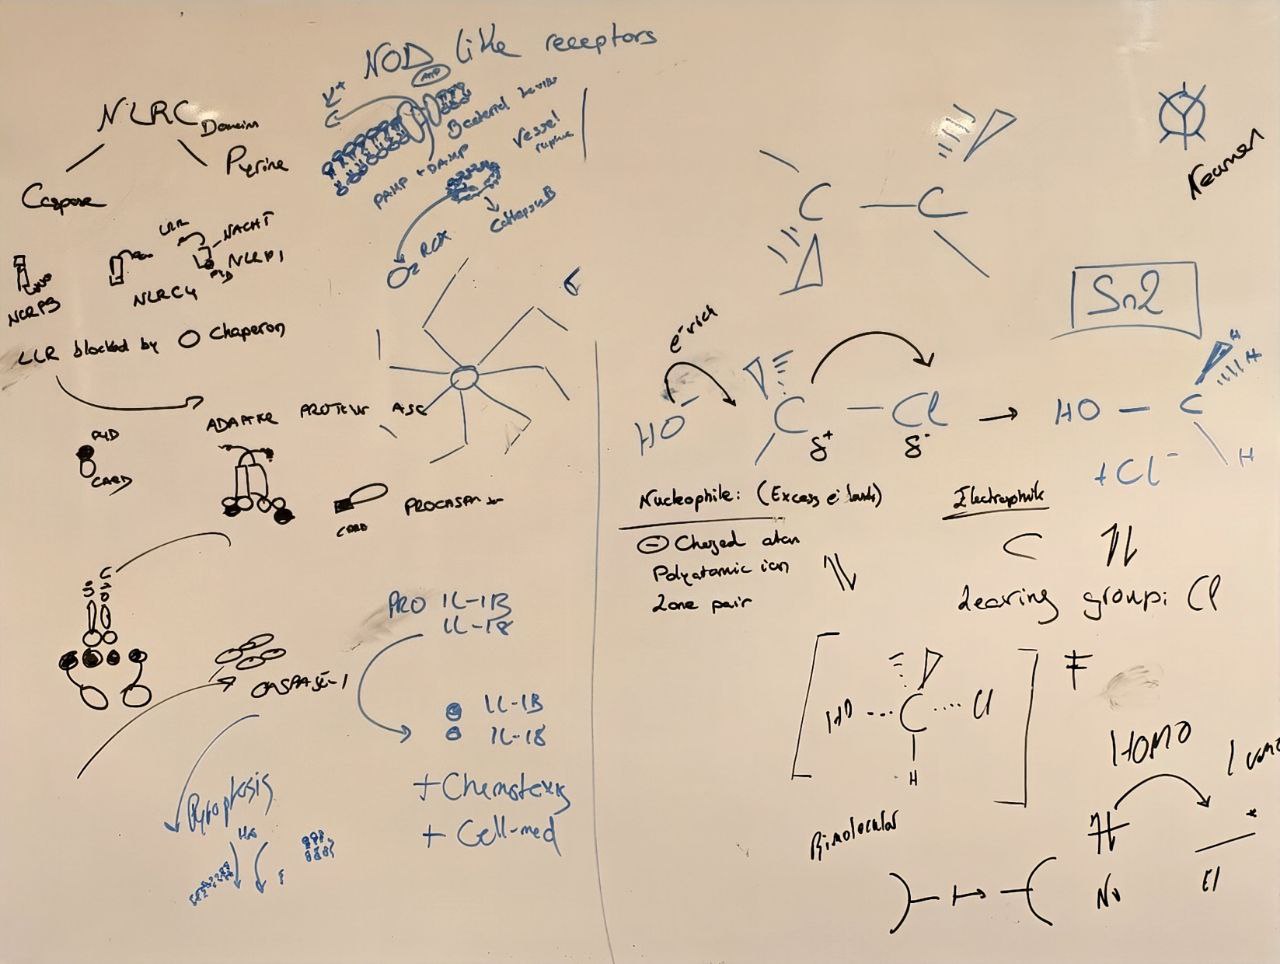 NOD like receptors
K+
ATP
NLRC Domain
Pyrine
Caspase
Bacterial
Vessel rupture
PAMP + DAMP
Cathepsin B
O2 ROX
LRR
NACHT
NLRP1
PYD
NLRC4
NLRP3
LLR blocked by O Chaperon
ADAPTER PROTEIN ASC
PYD
CARD
CARD
CASPASE-1
PRO IL-1B
IL-18
IL-1B
IL-18
+ Chemotexis
+ Cell-med
Pyroptosis
C C
Newman
Sn2
e- rich
HO-
C — Cl
δ+
δ-
HO — C
H
H
H
+ Cl-
Nucleophile: (Excess
⊖ Charged atan
Polyatomic ion
Lone pair
Electrophile
C
Leaving group: Cl
HO ... C .... Cl
H
‡
HOMO
Bimolecular
Nu
El
*